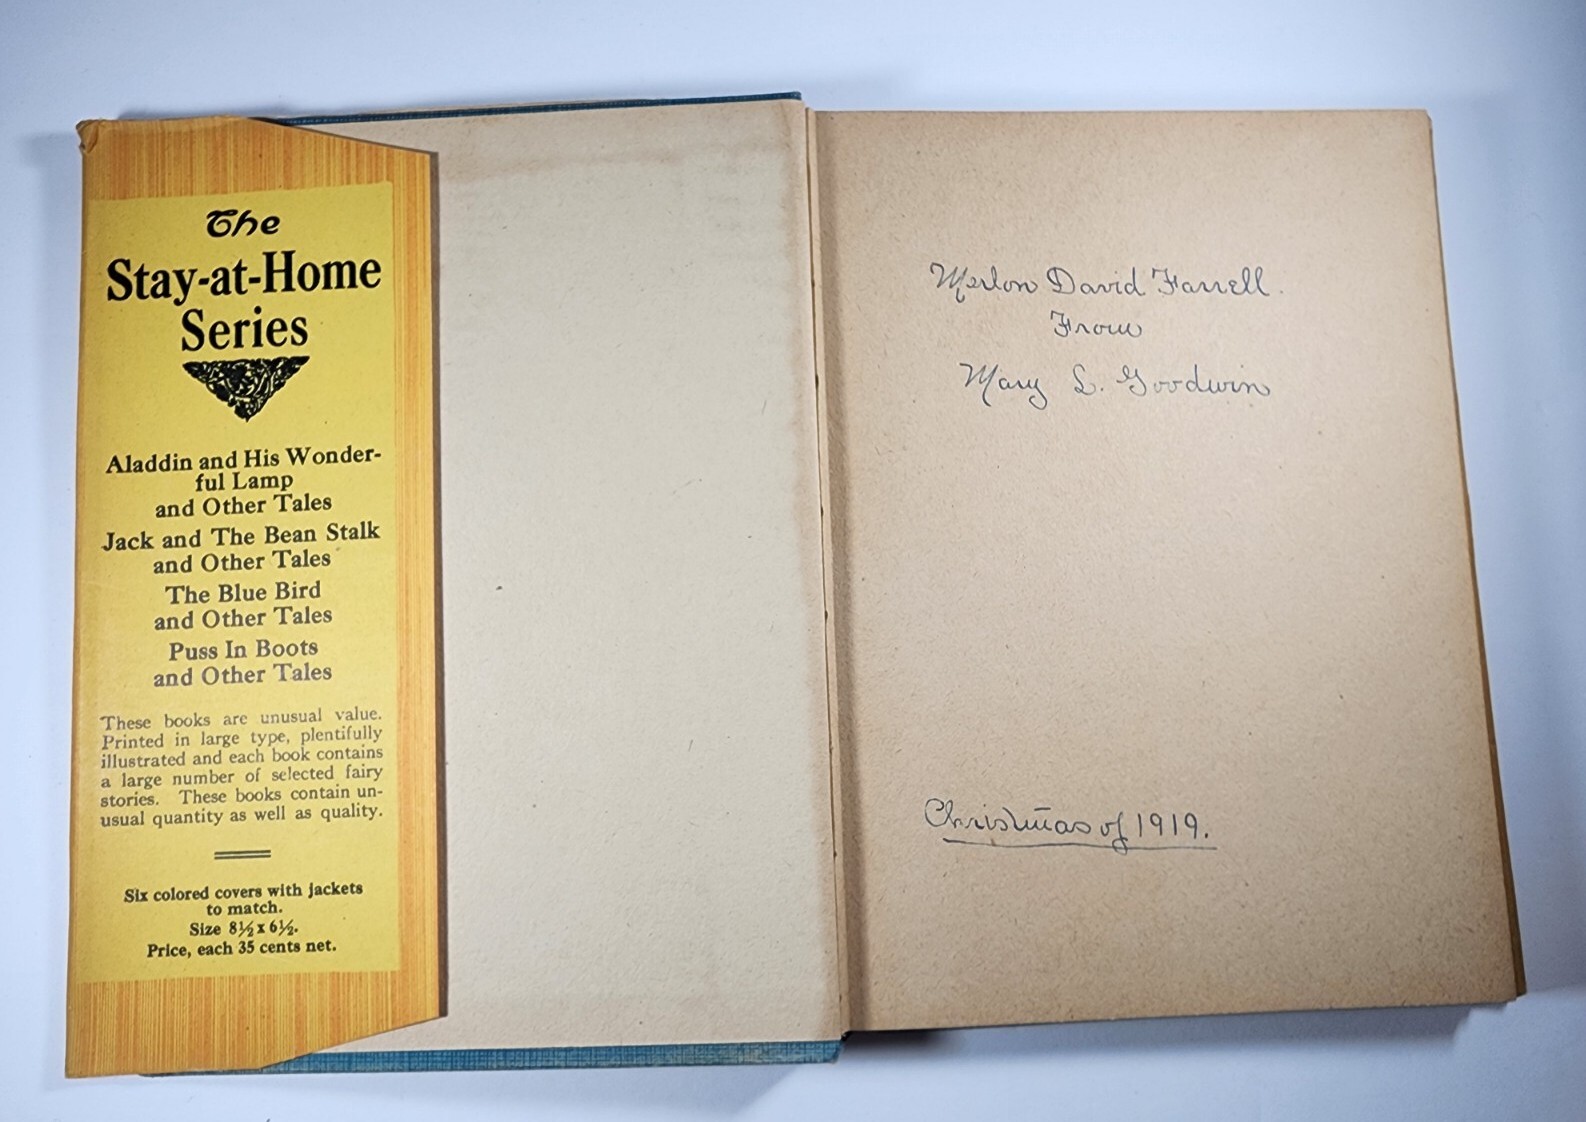 The
Stay-at-Home
Series
Aladdin and His Wonder-
ful Lamp
and Other Tales
Jack and The Bean Stalk
and Other Tales
The Blue Bird
and Other Tales
Puss In Boots
and Other Tales
These books are unusual value.
Printed in large type, plentifully
illustrated and each book contains
a large number of selected fairy
stories. These books contain un-
usual quantity as well as quality.
Six colored covers with jackets
to match.
Size 8½ x 6½.
Price, each 35 cents net.
Merlon David Farrell.
From
Mary L. Goodwin
Christmas of 1919.